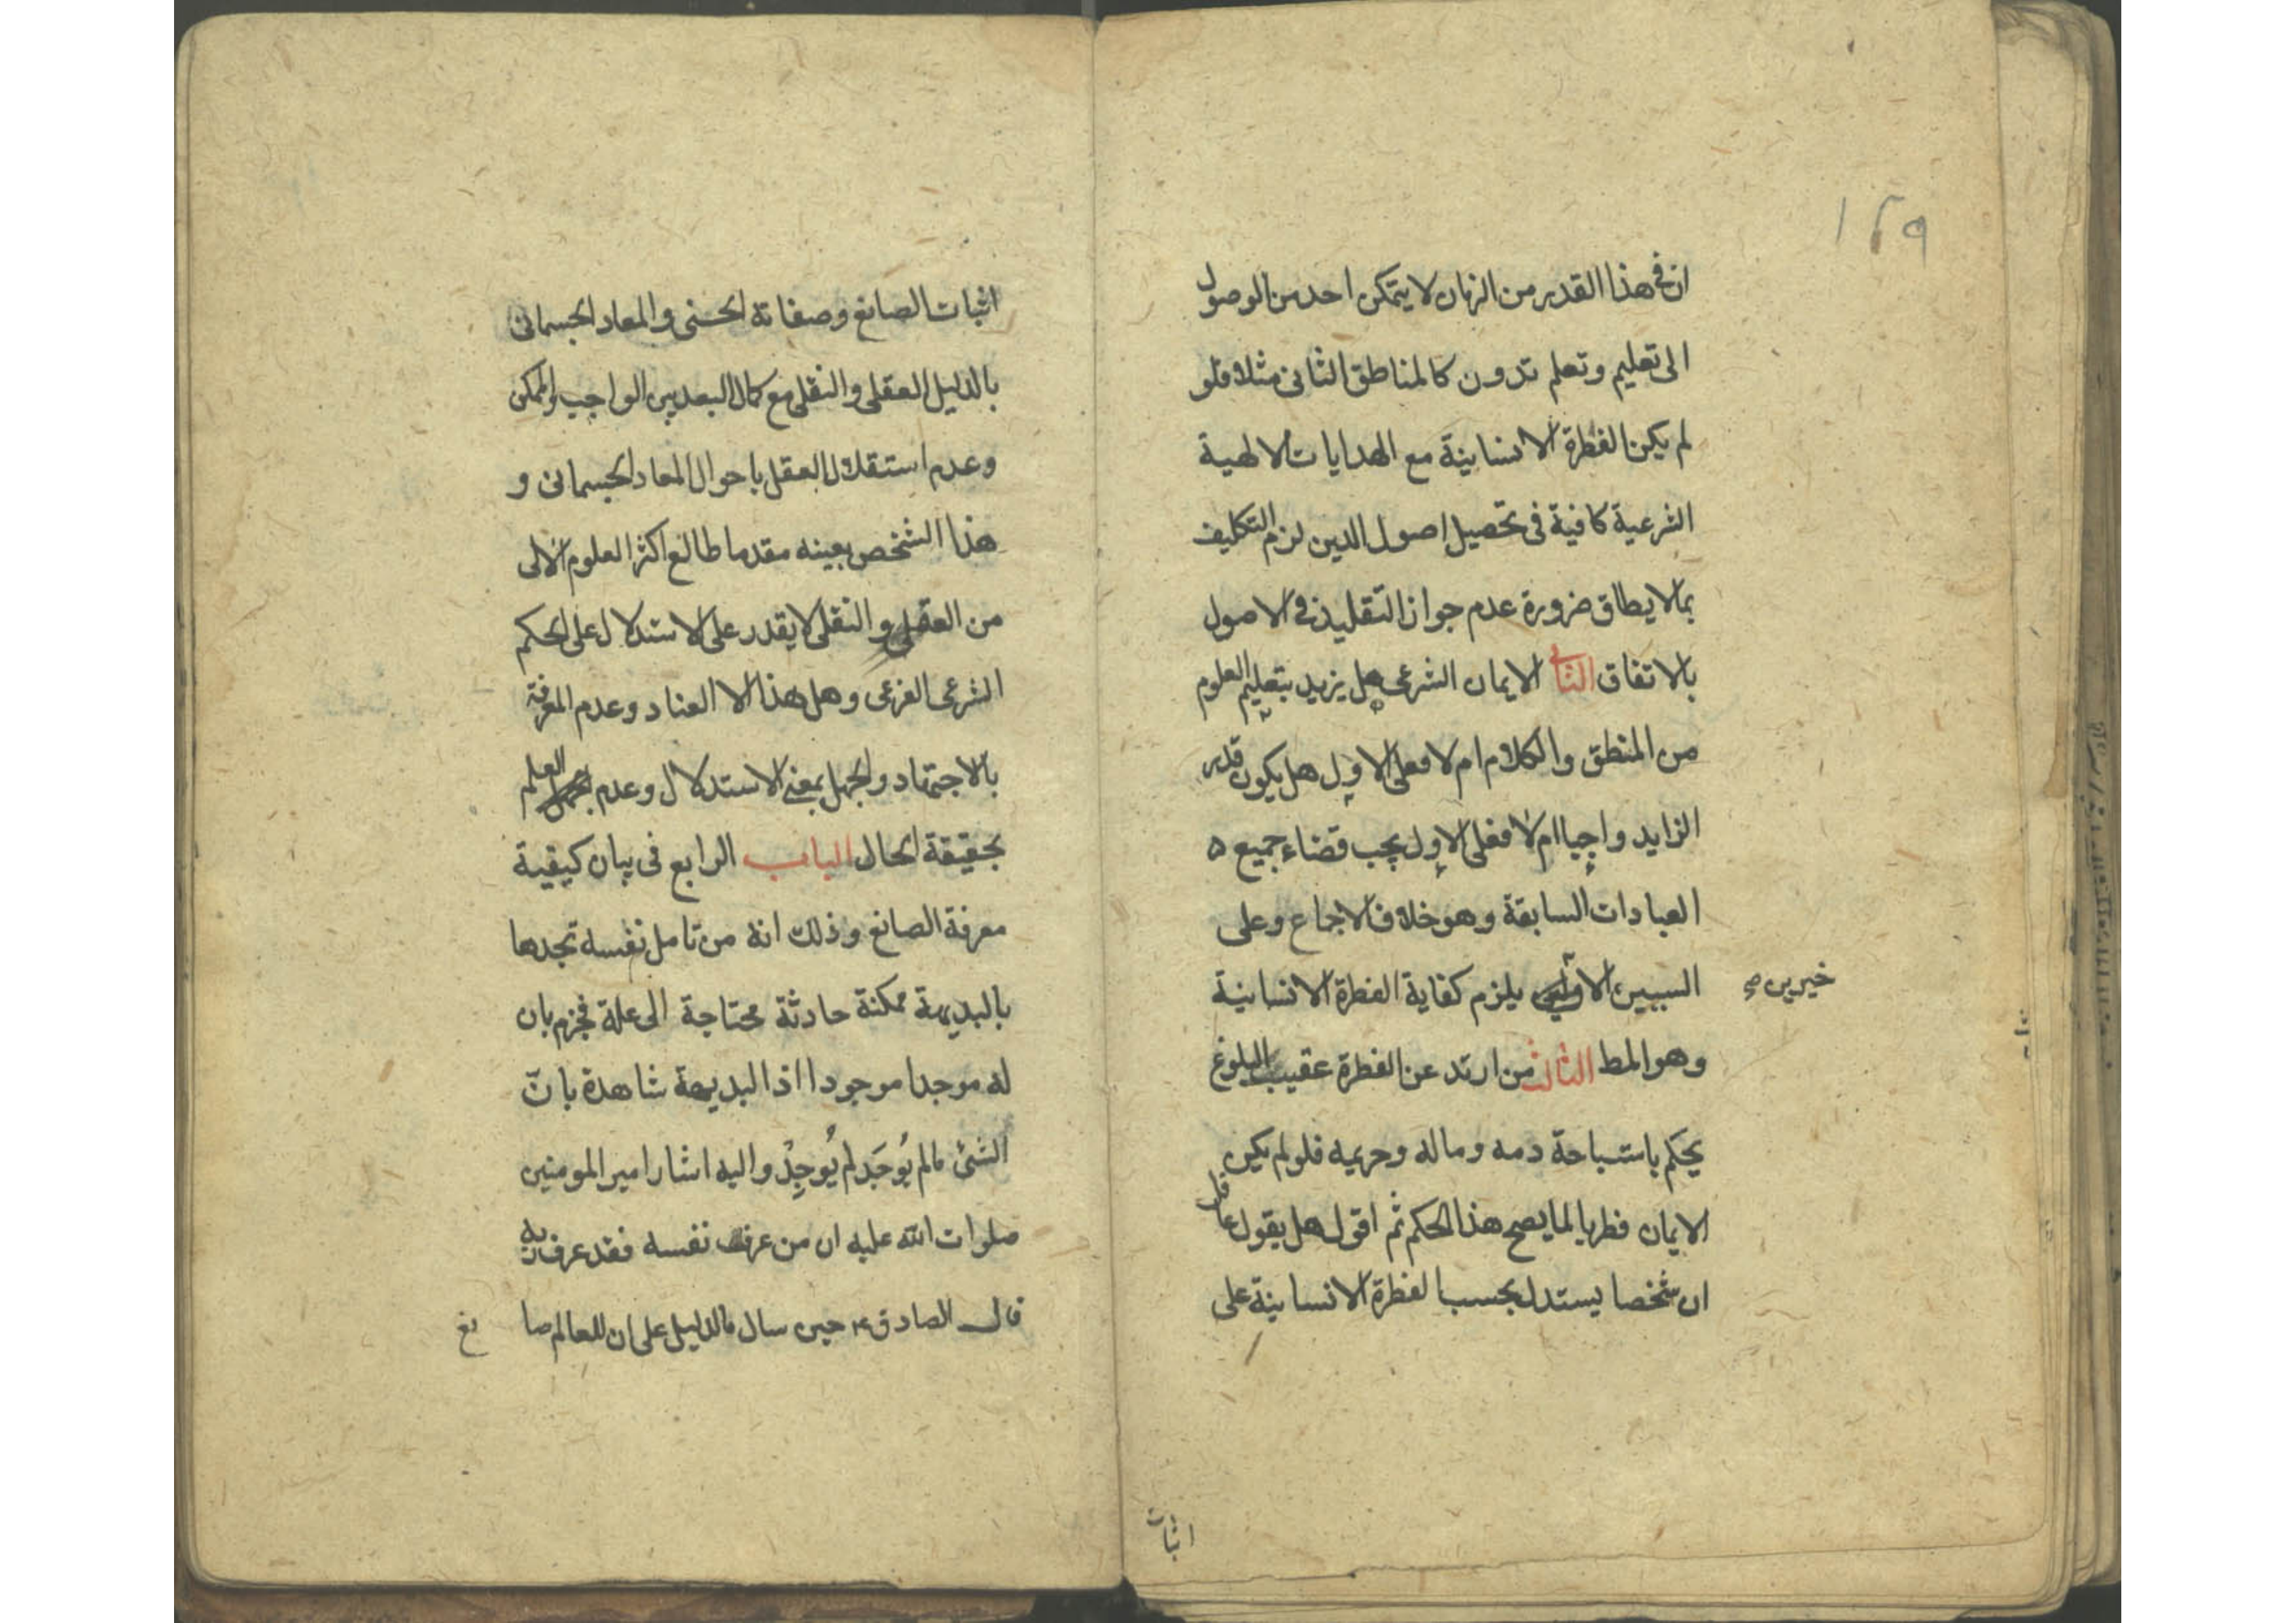 ١٤٩
ان فى هذا القدر من الزمان لا يتمكن احد من الوصول
الى تعليم وتعلم تدون كالمناطق الثانى مثلا فلو
لم يكن الفطرة الانسانية مع الهدايات الالهية
الشرعية كافية فى تحصيل اصول الدين لزم التكليف
بما لا يطاق ضرورة عدم جواز التقليد فى الاصول
بالاتفاق الثانى الايمان الشرعى هل يزيد بتعليم العلوم
من المنطق والكلام ام لا فعلى الاول هل يكون قدر
الزايد واجبا ام لا فعلى الاول يجب قضاء جميع
العبادات السابقة وهو خلاف الاجماع وعلى
السببين الا يلزم كفاية الفطرة الانسانية
خيرين صح
وهو المط الثالث من ارتد عن الفطرة عقيب البلوغ
يحكم باستباحة دمه وماله وحريمه فلو لم يكن
الايمان فطريا لما يصح هذا الحكم ثم اقول هل يقول عاقل
ان شخصا يستدل بحسب الفطرة الانسانية على
اثبات
اثبات الصانع وصفاته الحسنى والمعاد الجسمانى
بالدليل العقلى والنقلى مع كمال البعد بين الواجب والممكن
وعدم استقلال العقل باحوال المعاد الجسمانى و
هذا الشخص بعينه مقدما طالع اكثر العلوم الالى
من العقلى والنقلى لا يقدر على الاستدلال على الحكم
الشرعى الفرعى وهل هذا الا العناد وعدم المعرفة
بالاجتهاد والجهل بمعنى الاستدلال وعدم العلم
بحقيقة الحال الباب الرابع فى بيان كيفية
معرفة الصانع وذلك انه من تامل نفسه تجدها
بالبديهة ممكنة حادثة محتاجة الى علة فجزم بان
له موجدا موجودا اذ البديهة شاهدة بانّ
الشئ مالم يُوجَد لم يُوجِدْ واليه اشار امير المومنين
صلوات الله عليه ان من عرف نفسه فقد عرف ربه
قال الصادق ع حين سال ما الدليل على ان للعالم صا نع